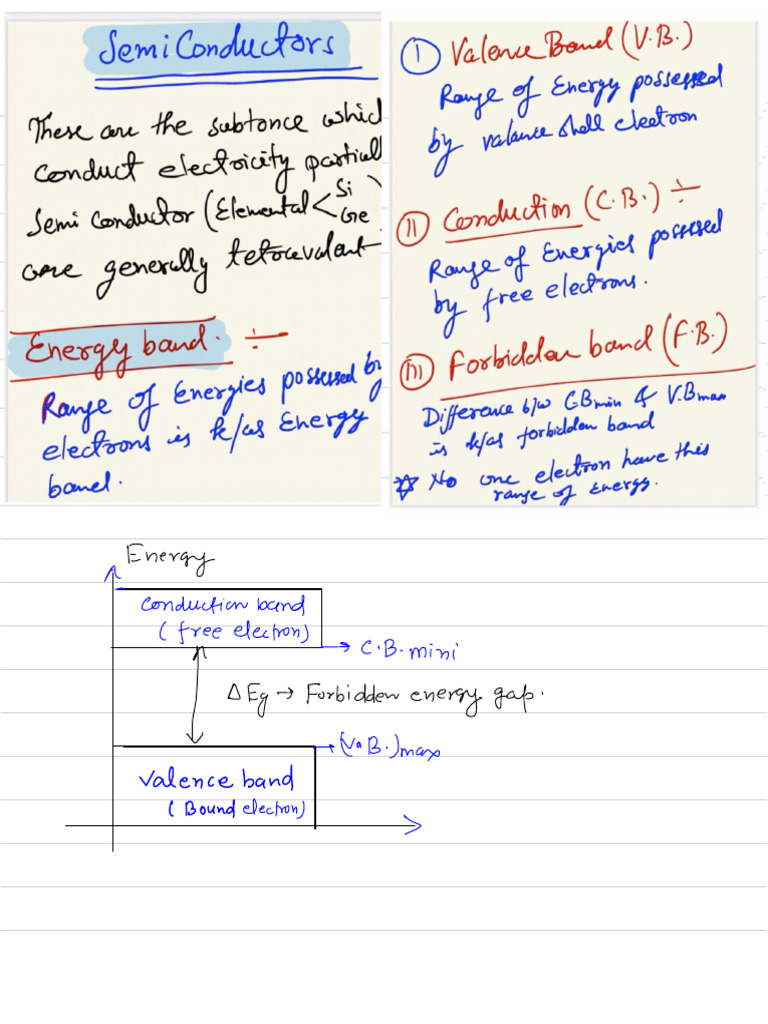 SemiConductors
These are the subtonce whic
Conduct electricity partiall
Semi Conductor (Elemental < Si
Ge
are generally tetravalent
Energy band. ÷
Range of Energies possessed by
electrons is k/as Energy
band.
I Valence Band (V.B.)
Range of Energy possessed
by valance shell electron
II Conduction (C.B.) ÷
Range of Energies possesed
by free electrons.
III Forbidden band (F.B.)
Difference b/w C.Bmin & V.Bmax
is k/as forbidden band
☆ No one electron have this
range of Energy.
Energy
Conduction band
(free electron)
→ C.B. mini
Δ Eg → Forbidden energy gap.
→ (Va B.)max
Valence band
(Bound electron)